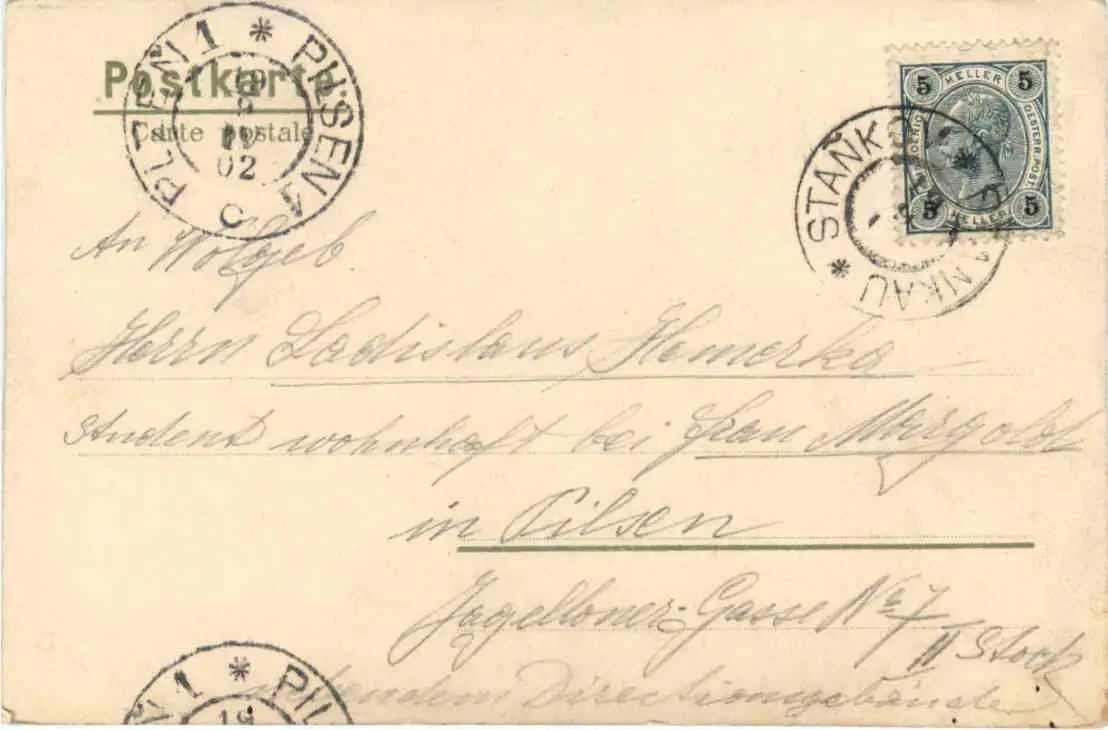 Postkarte.
Carte postale
PLZEŇ 1 * PILSEN 1
02
5 HELLER 5
OESTERR. POST.
5 HELLER 5
STAŇKOV * STANKAU *
An Wolgeb
Herrn Ladislaus Hemerka
Student wohnhaft bei Frau Margold
in Pilsen
Jagelloner-Gasse No 7
II Stock
Directionsgebäude